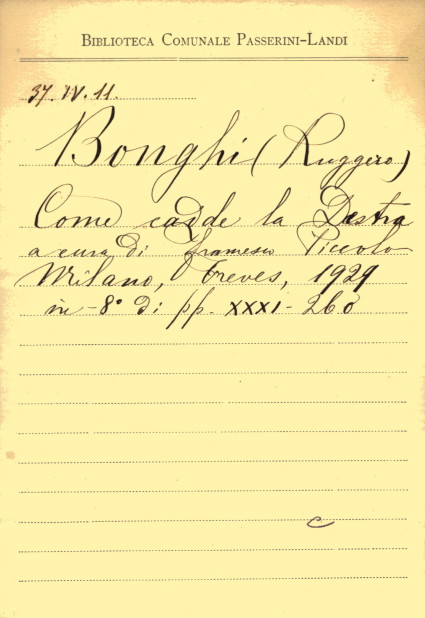 BIBLIOTECA COMUNALE PASSERINI-LANDI
37.IV.11.
Bonghi (Ruggero)
Come cadde la Destra
a cura di Francesco Piccolo
Milano, Treves, 1929
in-8° di pp. XXXI-260
c